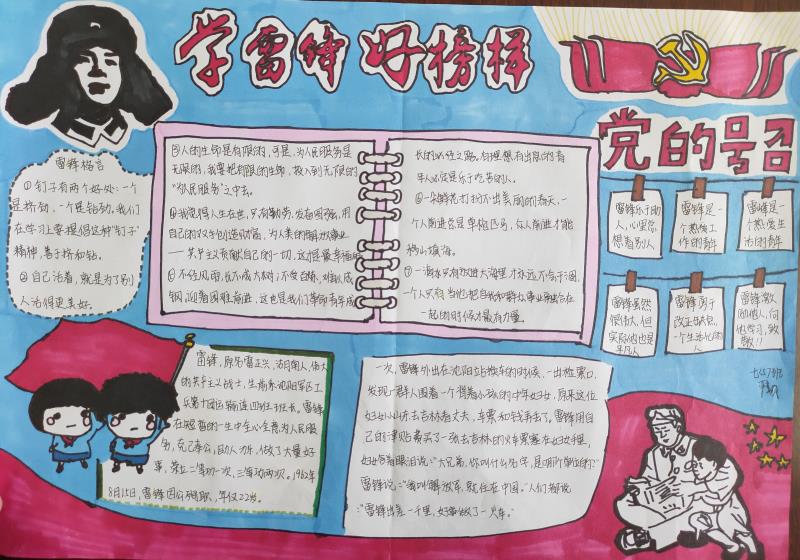 学雷锋 好榜样
党的号召
雷锋格言
①钉子有两个好处:一个
是挤劲,一个是钻劲,我们
在学习上要提倡这种"钉子"
精神,善于挤和钻。
②自己活着,就是为了别
人活得更美好。
③人的生命是有限的,可是,为人民服务是
无限的,我要把有限的生命,投入到无限的
"为人民服务"之中去。
④我觉得人生在世,只有勤劳,发奋图强,用
自己的双手创造财富,为人类的解放事业
——共产主义贡献自己的一切,这才是最幸福的
⑤不经风雨,长不成大树;不受百炼,难以成
钢,迎着困难前进,这也是我们革命青年成
长的必经之路。有理想有出息的青
年人必定是乐于吃苦的人。
⑥一朵鲜花打扮不出美丽的春天,一
个人前进总是单枪匹马,众人前进才能
移山填海。
⑦一滴水只有放进大海里才永远不会干涸,
一个人只有当他把自己和集体事业融合在
一起的时候才最有力量。
雷锋乐于助
人,心里总
想着别人
雷锋是一
个热爱工
作的青年
雷锋是一
个热爱生
活的青年
雷锋虽然
很伟大,但
实际他也是
平凡人
雷锋勇于
改正缺点,
一个生活化的
人
雷锋激
励他人,向
他学习,致
敬!!
雷锋,原名雷正兴,湖南人,伟大
的共产主义战士,生前系沈阳军区工
兵第十团运输连四班班长,雷锋
在短暂的一生中全心全意为人民服
务,克己奉公,助人为乐,做了大量好
事,荣立二等功一次,三等功两次。1962年
8月15日,雷锋因公殉职,年仅22岁。
一次,雷锋外出在沈阳站换车的时候,一出检票口,
发现一群人围着一个背着小孩的中年妇女,原来这位
妇女从山东去吉林看丈夫,车票和钱丢了。雷锋用自
己的津贴费买了一张去吉林的火车票塞在妇女手里,
妇女含着眼泪说:"大兄弟,你叫什么名字,是哪个单位的?"
雷锋说:"我叫解放军,就住在中国。"人们都说
:"雷锋出差一千里,好事做了一火车。"